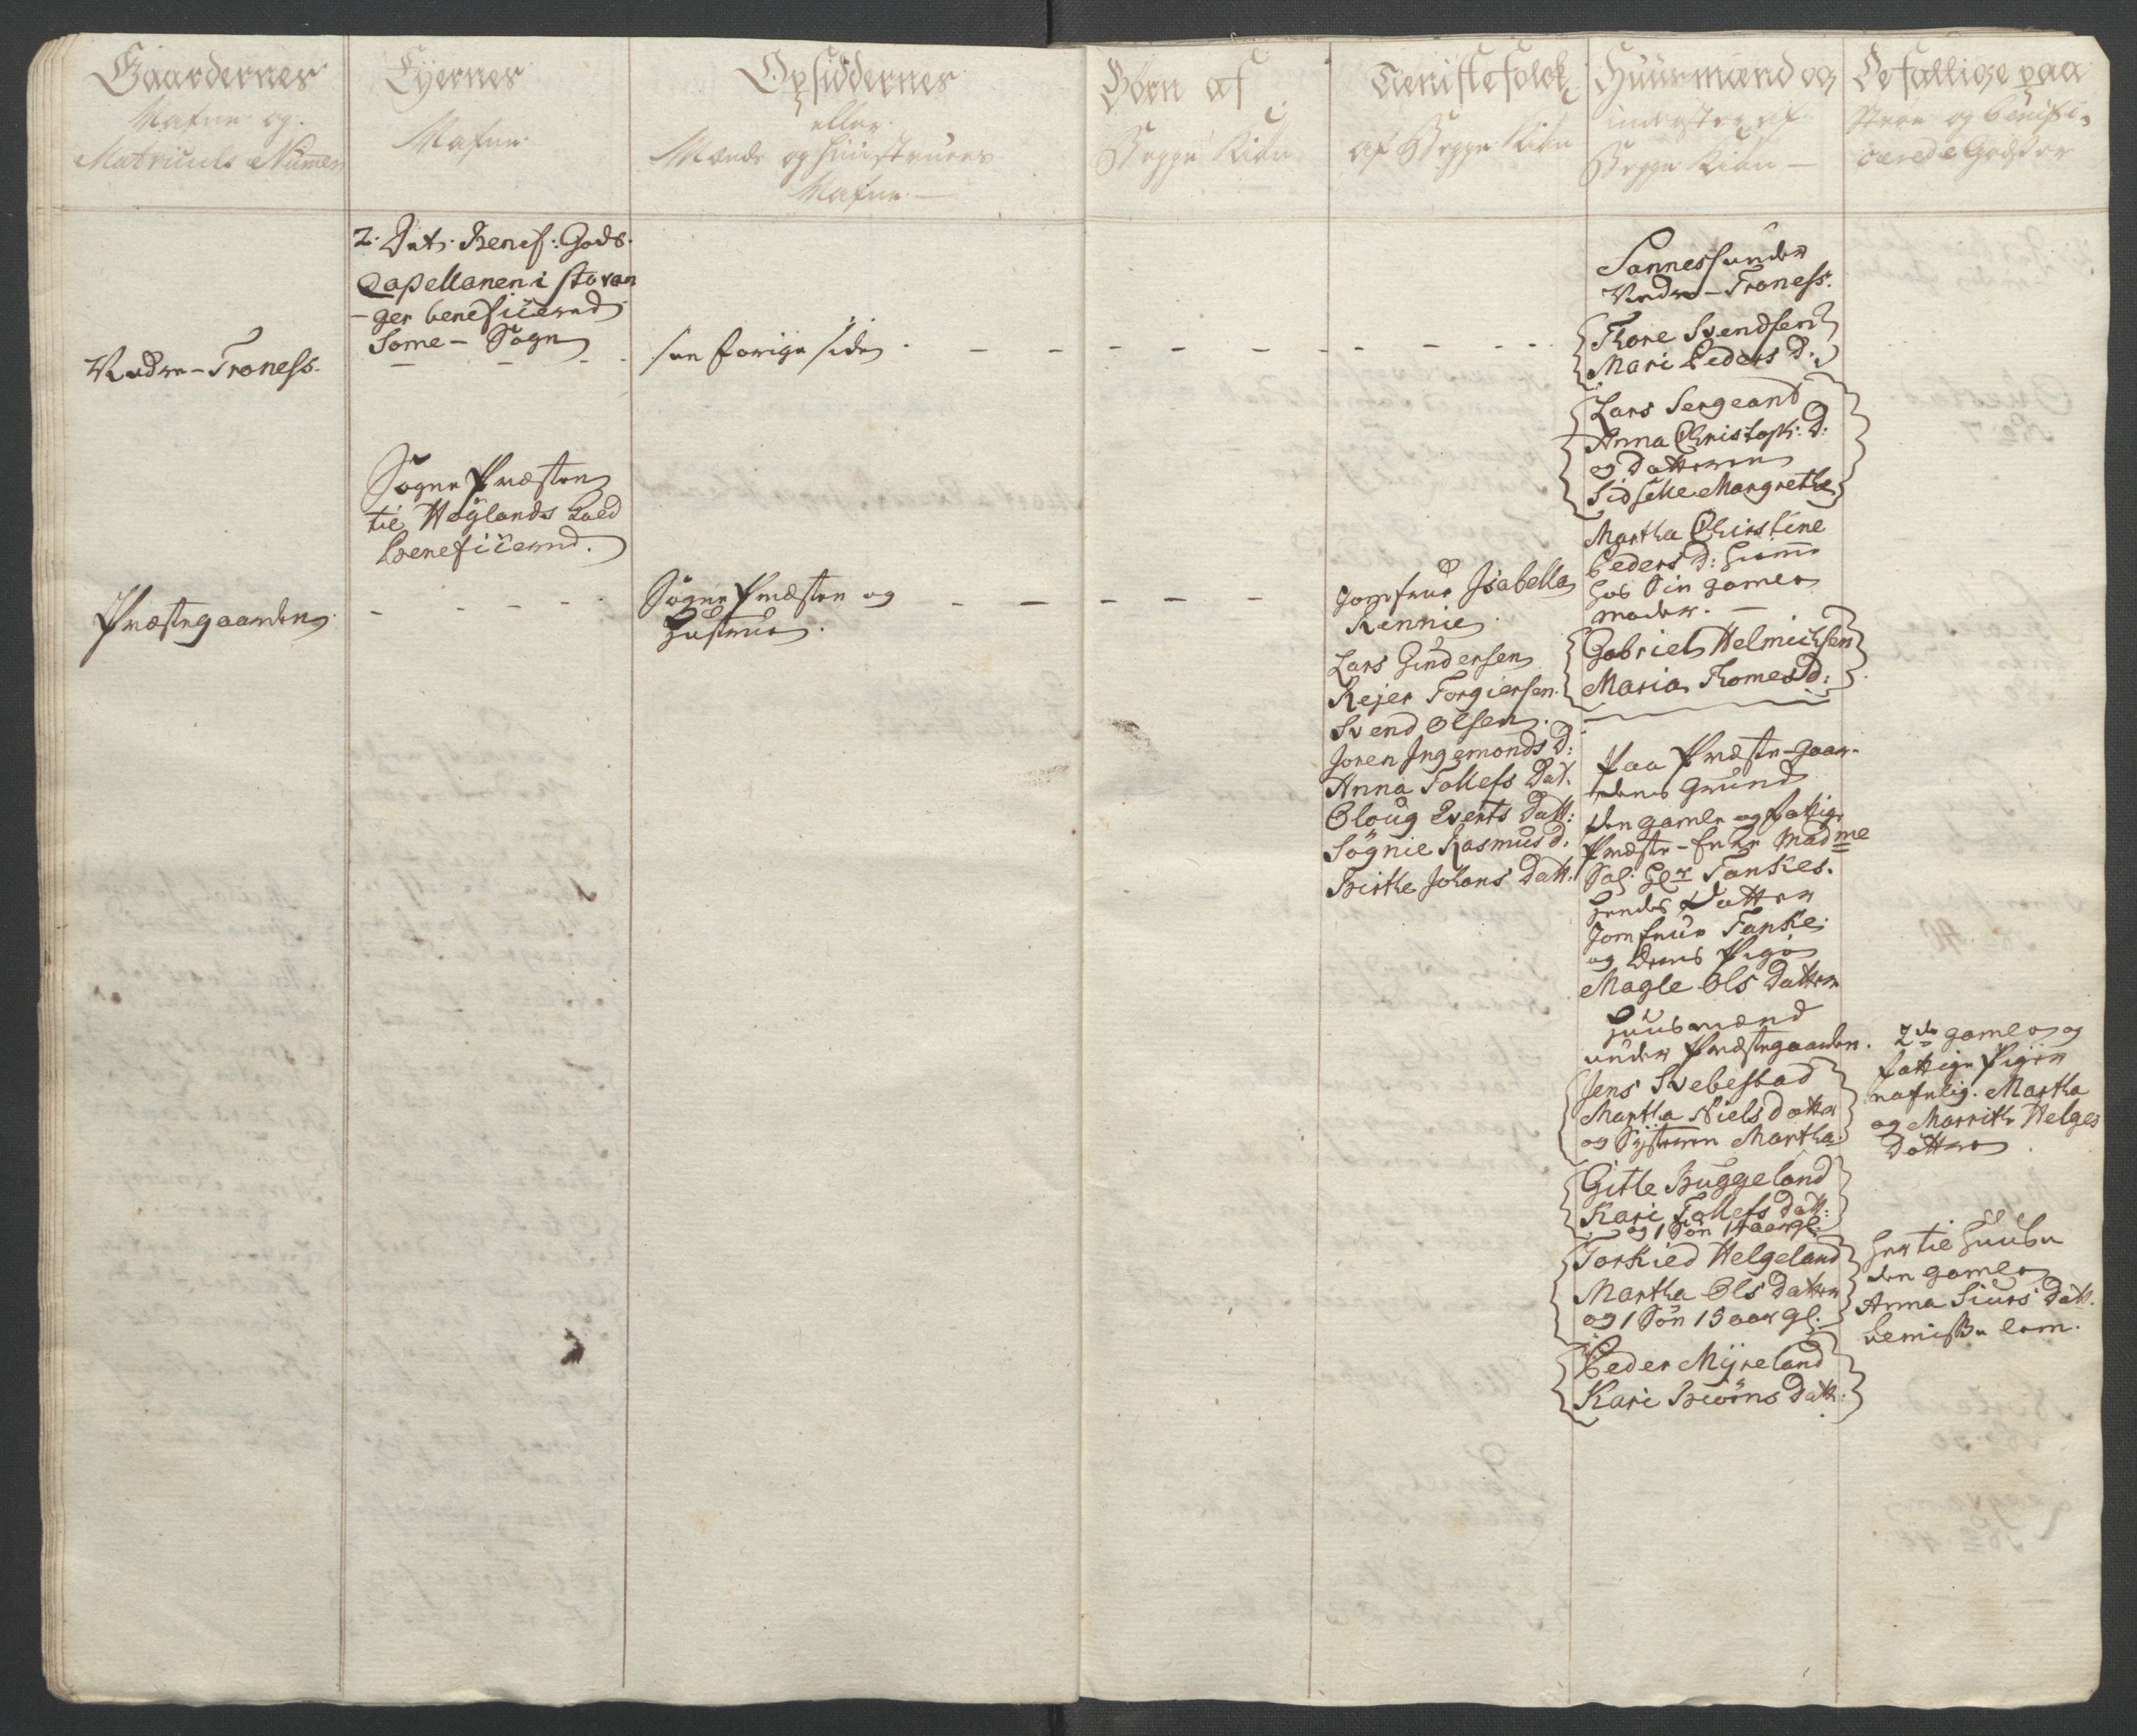 Gaardernes
Nafne og
Matriculs Numer
Eyernes
Nafne
Opsiddernes
eller
Mænds og Hustruers
Nafne —
Børn af
Begge Kiøn
Tienistefolck
af Begge Kiøn
Huusmænd og
inderster af
Begge Kiøn —
De fattige paa
og benefi-
cerede Godser
2. Dito Benef: Gods.
Capellanen i Stavan
-ger beneficerend
Some - Sogn
Nedre - Troness.
see forrige side
Sannes under
Nedre - Troness.
Thore Svendsen
Mari Peders D:
Lars Sergeant
Anna Christoph: D:
og Datteren
Sidselle Margrethe
Martha Christine
Peders D: hiemme
hos Sin gamle
moder. —
Gabriel Helmichsen
Maria Thomes D:
Sogne Præsten
til Høylands Kald
beneficerend.
Præstegaarden
Sogne Præsten og
Hustrue.
Jomfrue Isabella
Rennie
Lars Gundersen
Rejer Torgiersen
Svend Olsen.
Joren Ingemonds D:
Anna Tollefs Dat.
Oloug Everts Datt:
Sögnie Rasmus d.
Birthe Johans Datt.
Paa Præste-Gaar-
dens Grund
den gamle og fattige
Præste-Enke Madme
Sal: Hr Fankes.
hendes Datter
Jomfrue Fanke.
og deres Pige
Magle Ols Datter
Huusmænd
under Præstegaarden.
Jens Svebestad
Martha Niels Datter
og Systeren Martha.
Gitle Buggeland
Kari Tollefs Datt:
og 1 Søn 14 aar gl.
Torkied Helgeland
Martha Ols Datter
og 1 Søn 15 aar gl.
Peder Myreland
Kari Biörns Datt:
2de gamle og
fattige Piger
nafnlig. Martha
og Marrithe Helges
Døttre
her til Huuse
den gamle
Anna Siurs Datt.
Lemisse Lem.